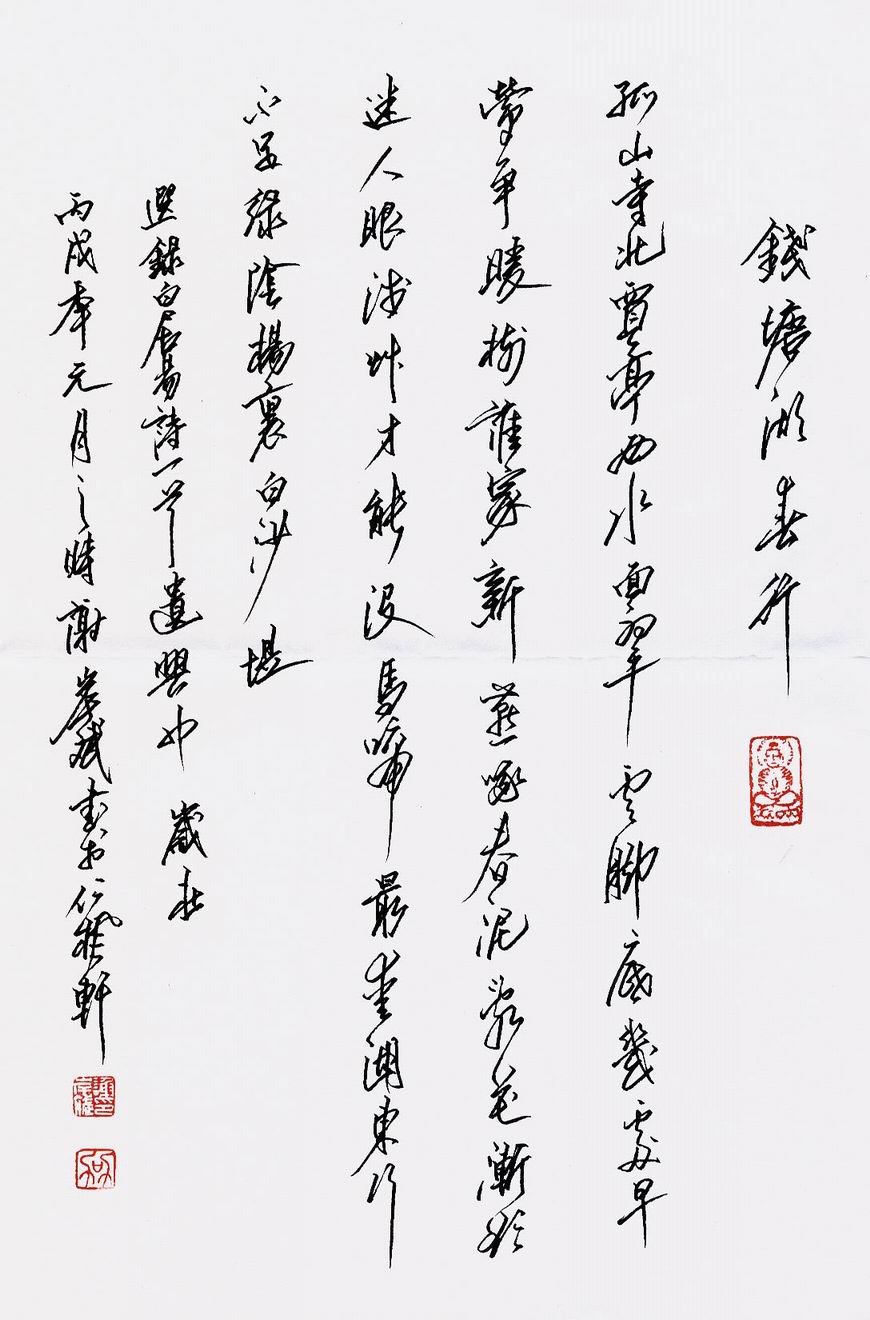 錢塘湖春行
孤山寺北賈亭西水面初平雲脚底幾處早
鶯爭暖樹誰家新燕啄春泥亂花漸欲
迷人眼淺艸才能没馬啼最愛湖東行
不足綠陰楊裏白沙堤
選錄白居易詩一首遣興也歲在
丙戌年元月之時謝斌書於仁軒